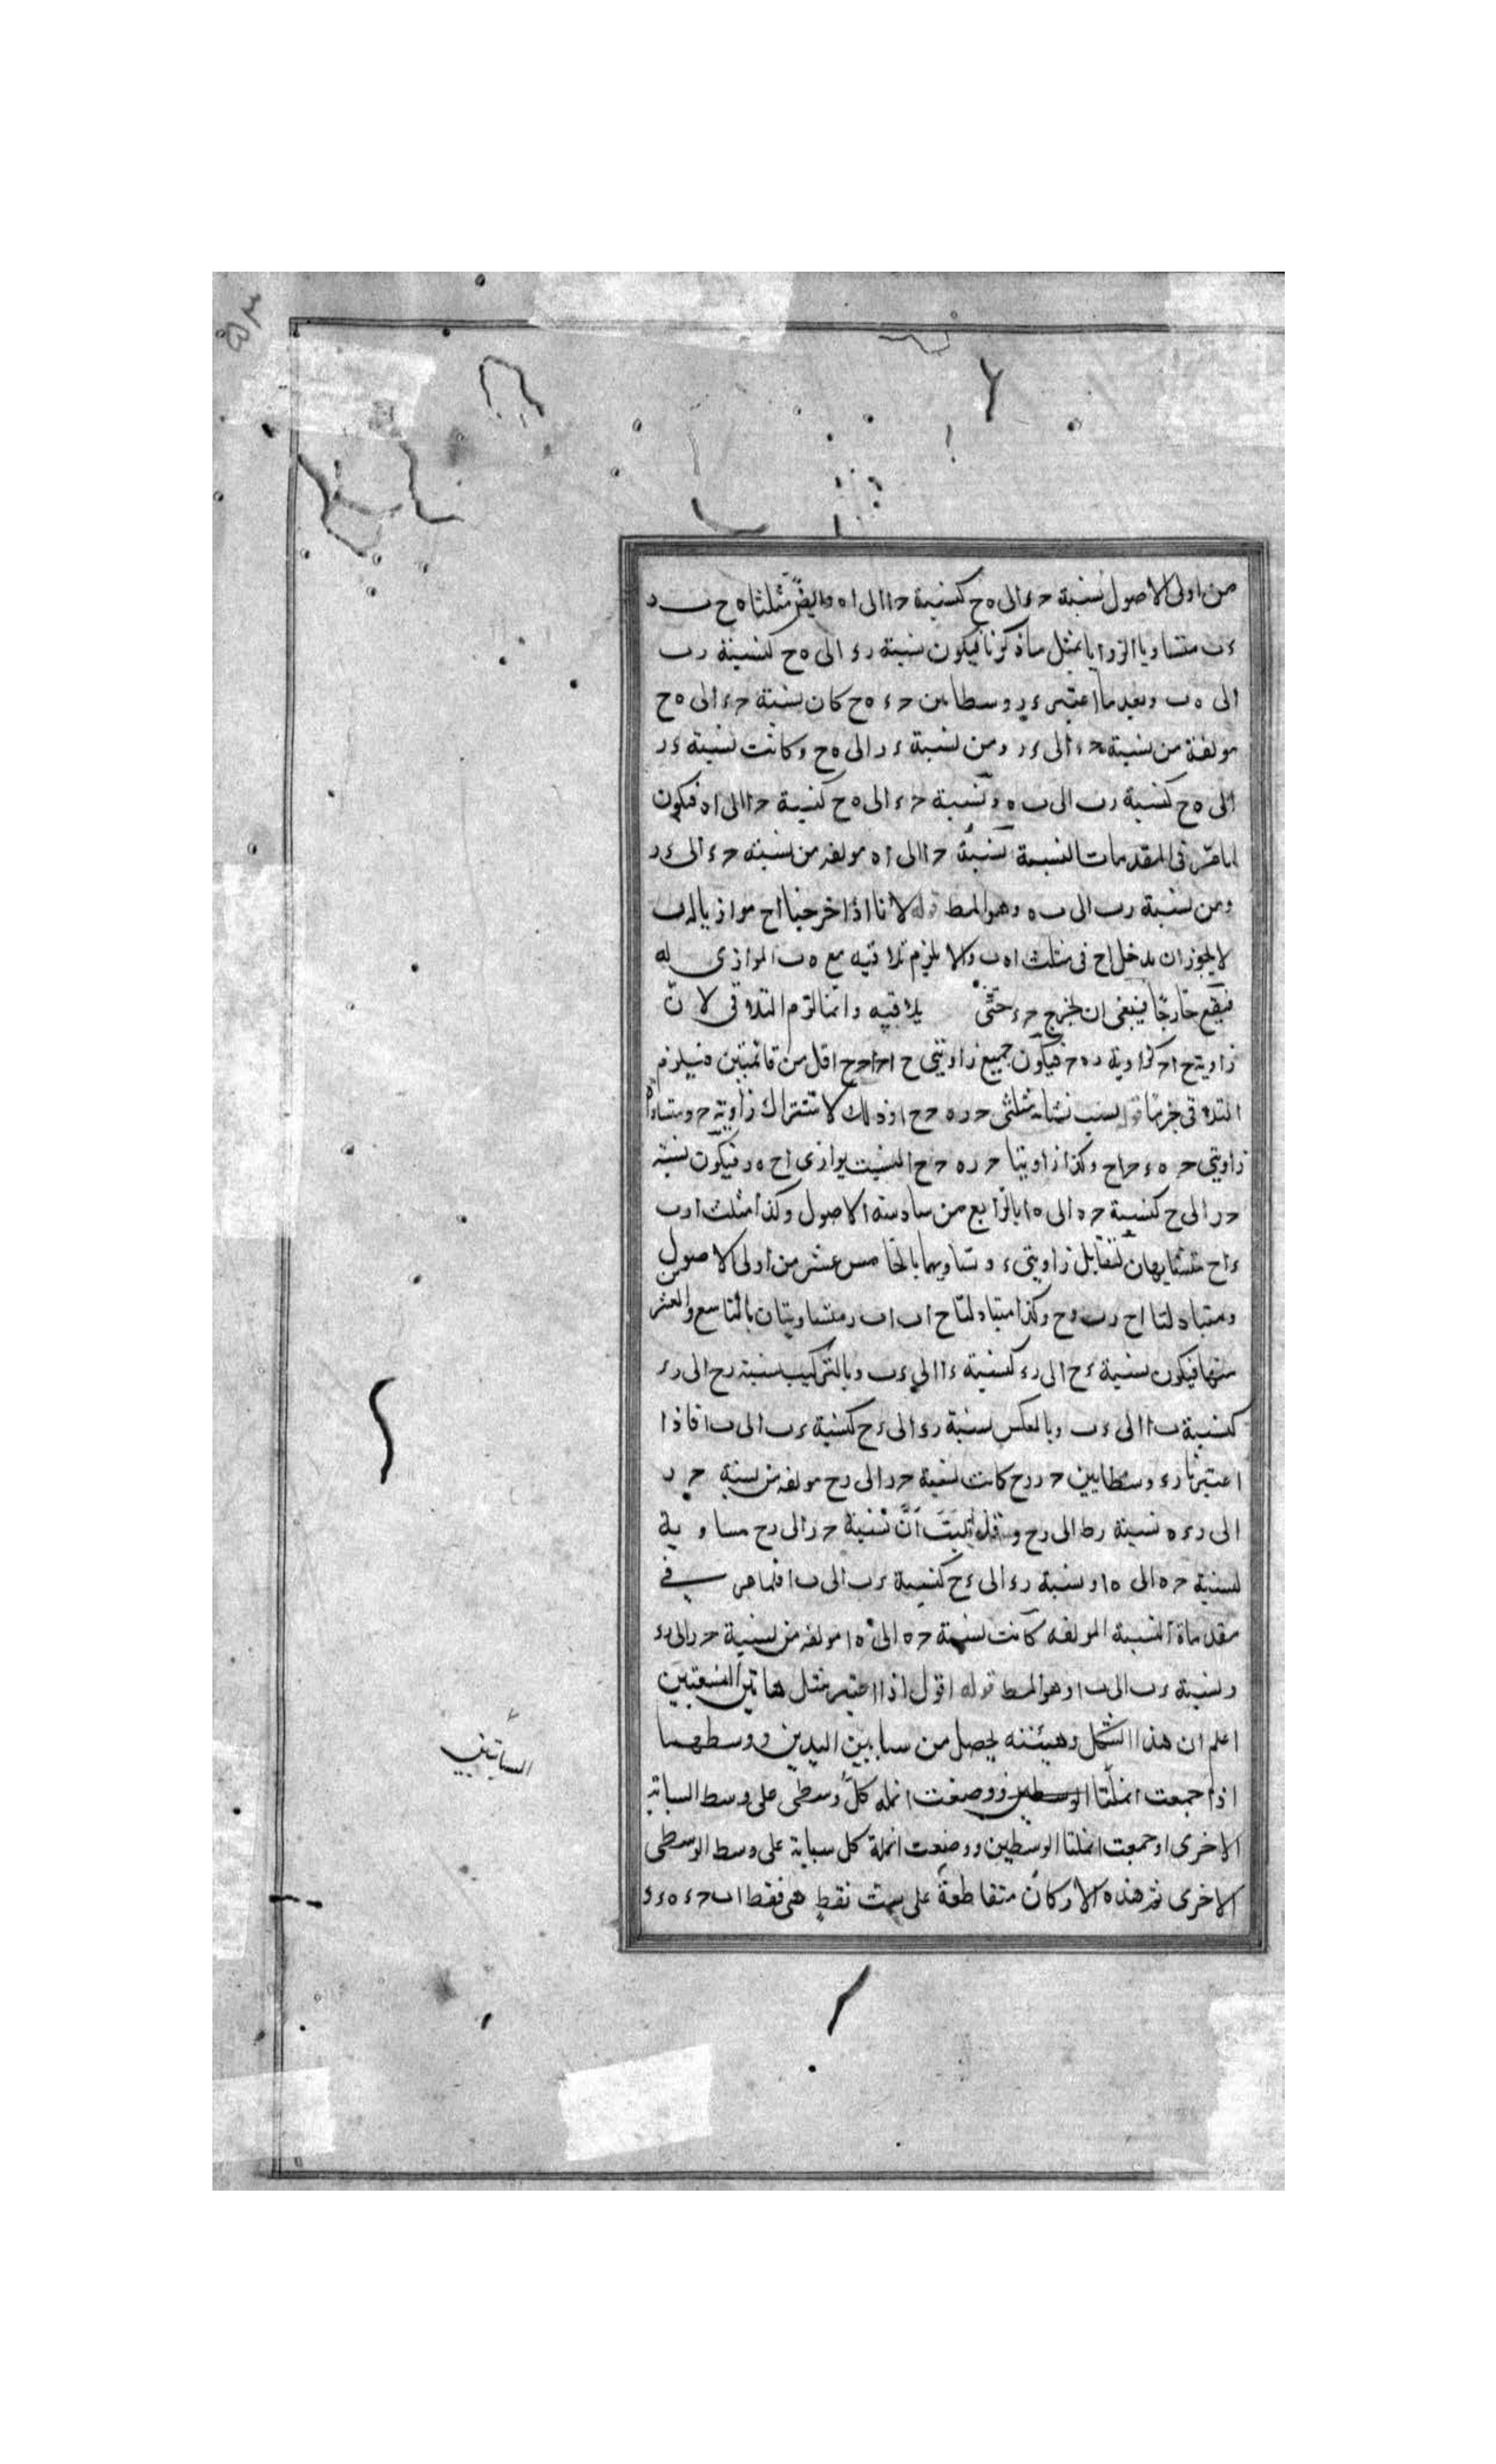 من اولى الاصول نسبة حء الى ه ح كنسبة حا الى اه وايضا مثلثا ه ح ب د
ء ب متساويا الزوايا بمثل ما ذكرنا فيكون نسبة رء الى ه ح كنسبة رب
الى ه ب وبعد ما اعتبر ء ر وسطا بين حء ه ح كان نسبة حء الى ه ح
مولفة من نسبة حء الى ء ر ومن نسبة ء ر الى ه ح وكانت نسبة ء ر
الى ه ح كنسبة رب الى ب ه ونسبة حء الى ه ح كنسبة حا الى اه فيكون
لما مر فى المقدمات النسبة نسبة حا الى اه مولفه من نسبه حء الى ء ر
ومن نسبة رب الى ب ه وهو المط قوله لانا اذا خرجنا اح موازيا له ب
لا يجوز ان يدخل اح فى مثلث اه ب والا يلزم تلاقيه مع ه ب الموازى له
فيقع خارجا فينبغى ان يخرج حء حتى يلاقيه وانما لزم التلاقى لان
زاوية ح ا ح كزاوية ر ه ح فيكون جميع زاويتى ح ا ح ا ح ح اقل من قائمتين فيلزم
التلاقى جزما قوله لسبب تشابه مثلثى ح ر ه ح ح ا وذلك لاشتراك زاوية ح وتساوى
زاويتى ح ه ء ح اح وكذا زاويتا ح ر ه ح ح ا لتوازى اح ه ر فيكون نسبة
ح ر الى ح كنسبة ح ه الى ه ا بالرابع من سادسة الاصول وكذا مثلث ا ء ب
ء اح متشابهان لتقابل زاويتى ء وتساويهما بالخامس عشر من اولى الاصول
ومتبادلتا اح رب ء ح وكذا متبادلتا ح اب اب ر متساويتان بالتاسع والعشرين
منها فيكون نسبة ء ح الى رء كنسبة ءا الى ء ب وبالتركيب نسبة رح الى رء
كنسبة ب ا الى ء ب وبالعكس نسبة رء الى ء ح كنسبة ء ب الى ب ا فاذا
اعتبرنا رء وسطا بين ح ر رح كانت نسبة ح ر الى رح مولفه من نسبة ح ر
الى رء ه نسبة رط الى رح وقد ثبت ان نسبة ح ر الى رح مساوية
لنسبة ح ه الى ه ا ونسبة رء الى ء ح كنسبة ء ب الى ب ا فلما مر فى
مقدماة النسبة المولفه كانت نسبة ح ه الى ه ا مولفه من نسبة ح ر الى رء
ونسبة ء ب الى ب ا وهو المط قوله اقول اذا اعتبر مثل هاتين النسبتين
اعلم ان هذا الشكل وهيئته يحصل من سبابتين اليدين ووسطهما
اذا جمعت انملتا الوسطين ووضعت انمله كل وسطى على وسط السبابة
الاخرى او جمعت انملتا الوسطين ووضعت انملة كل سبابة على وسط الوسطى
الاخرى ثم هذه الاركان متقاطعة على ست نقط هى نقط اب حء ه ر
السبابتين